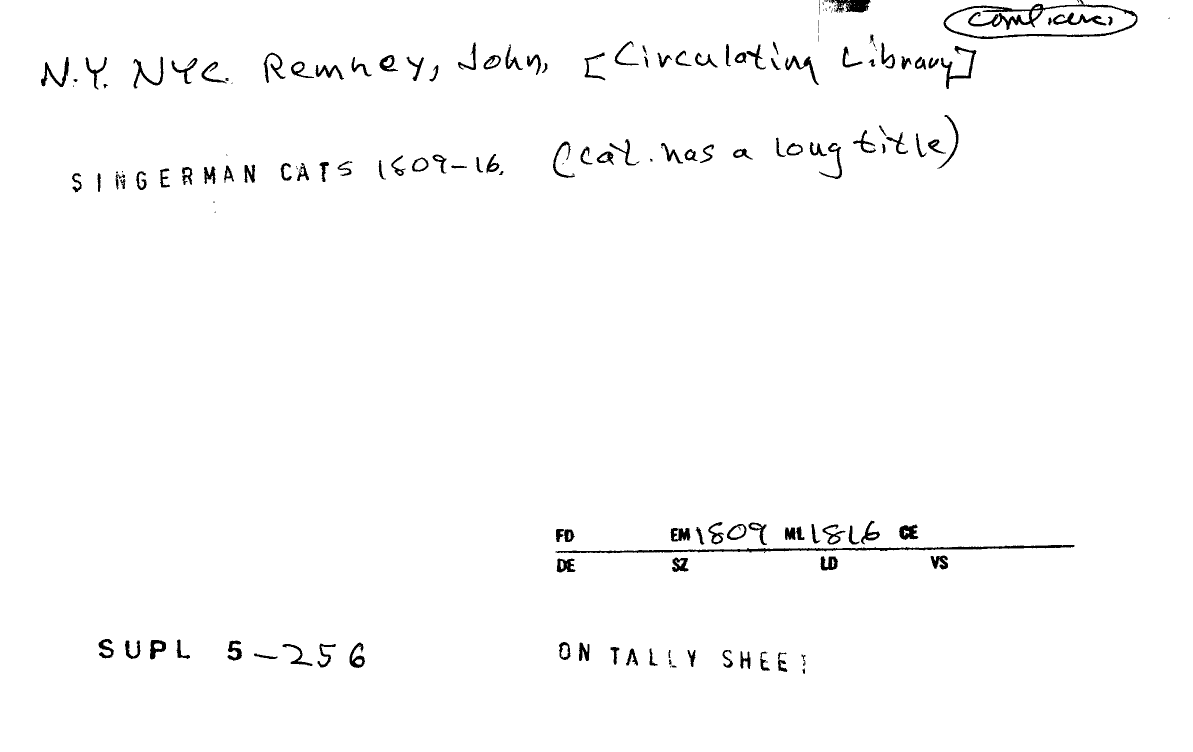 coml. circ.
N.Y. NYC. Remney, John, [Circulating Library]
SINGERMAN CATS 1809-16. (cat. has a long title)
FD EM 1809 ML 1816 CE
DE SZ LD VS
SUPL 5-256 ON TALLY SHEET